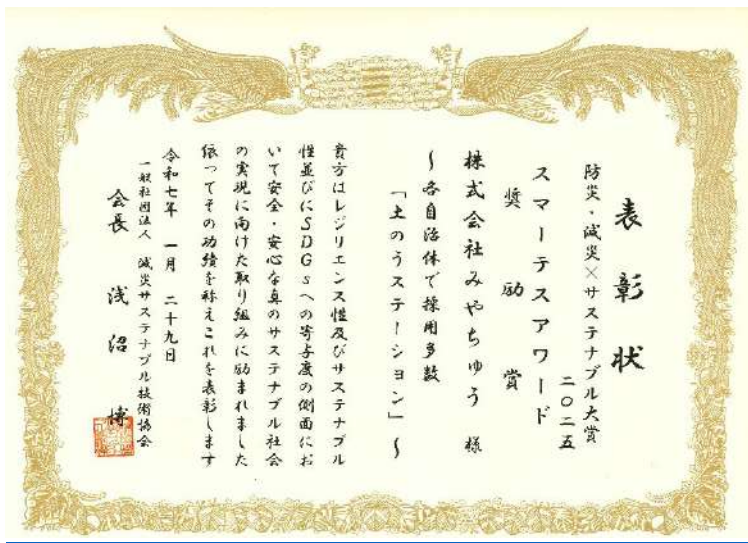 表彰状
防災・減災×サステナブル大賞
二〇二五
スマーテスアワード
奨励賞
株式会社みやちゅう 様
～各自治体で採用多数
「土のうステーション」～
貴方はレジリエンス性及びサステナブル
性並びにSDGsへの寄与度の側面にお
いて安全・安心な真のサステナブル社会
の実現に向けた取り組みに励まれました
依ってその功績を称えこれを表彰します
令和七年 一月 二十九日
一般社団法人 減災サステナブル技術協会
会長 浅沼 博